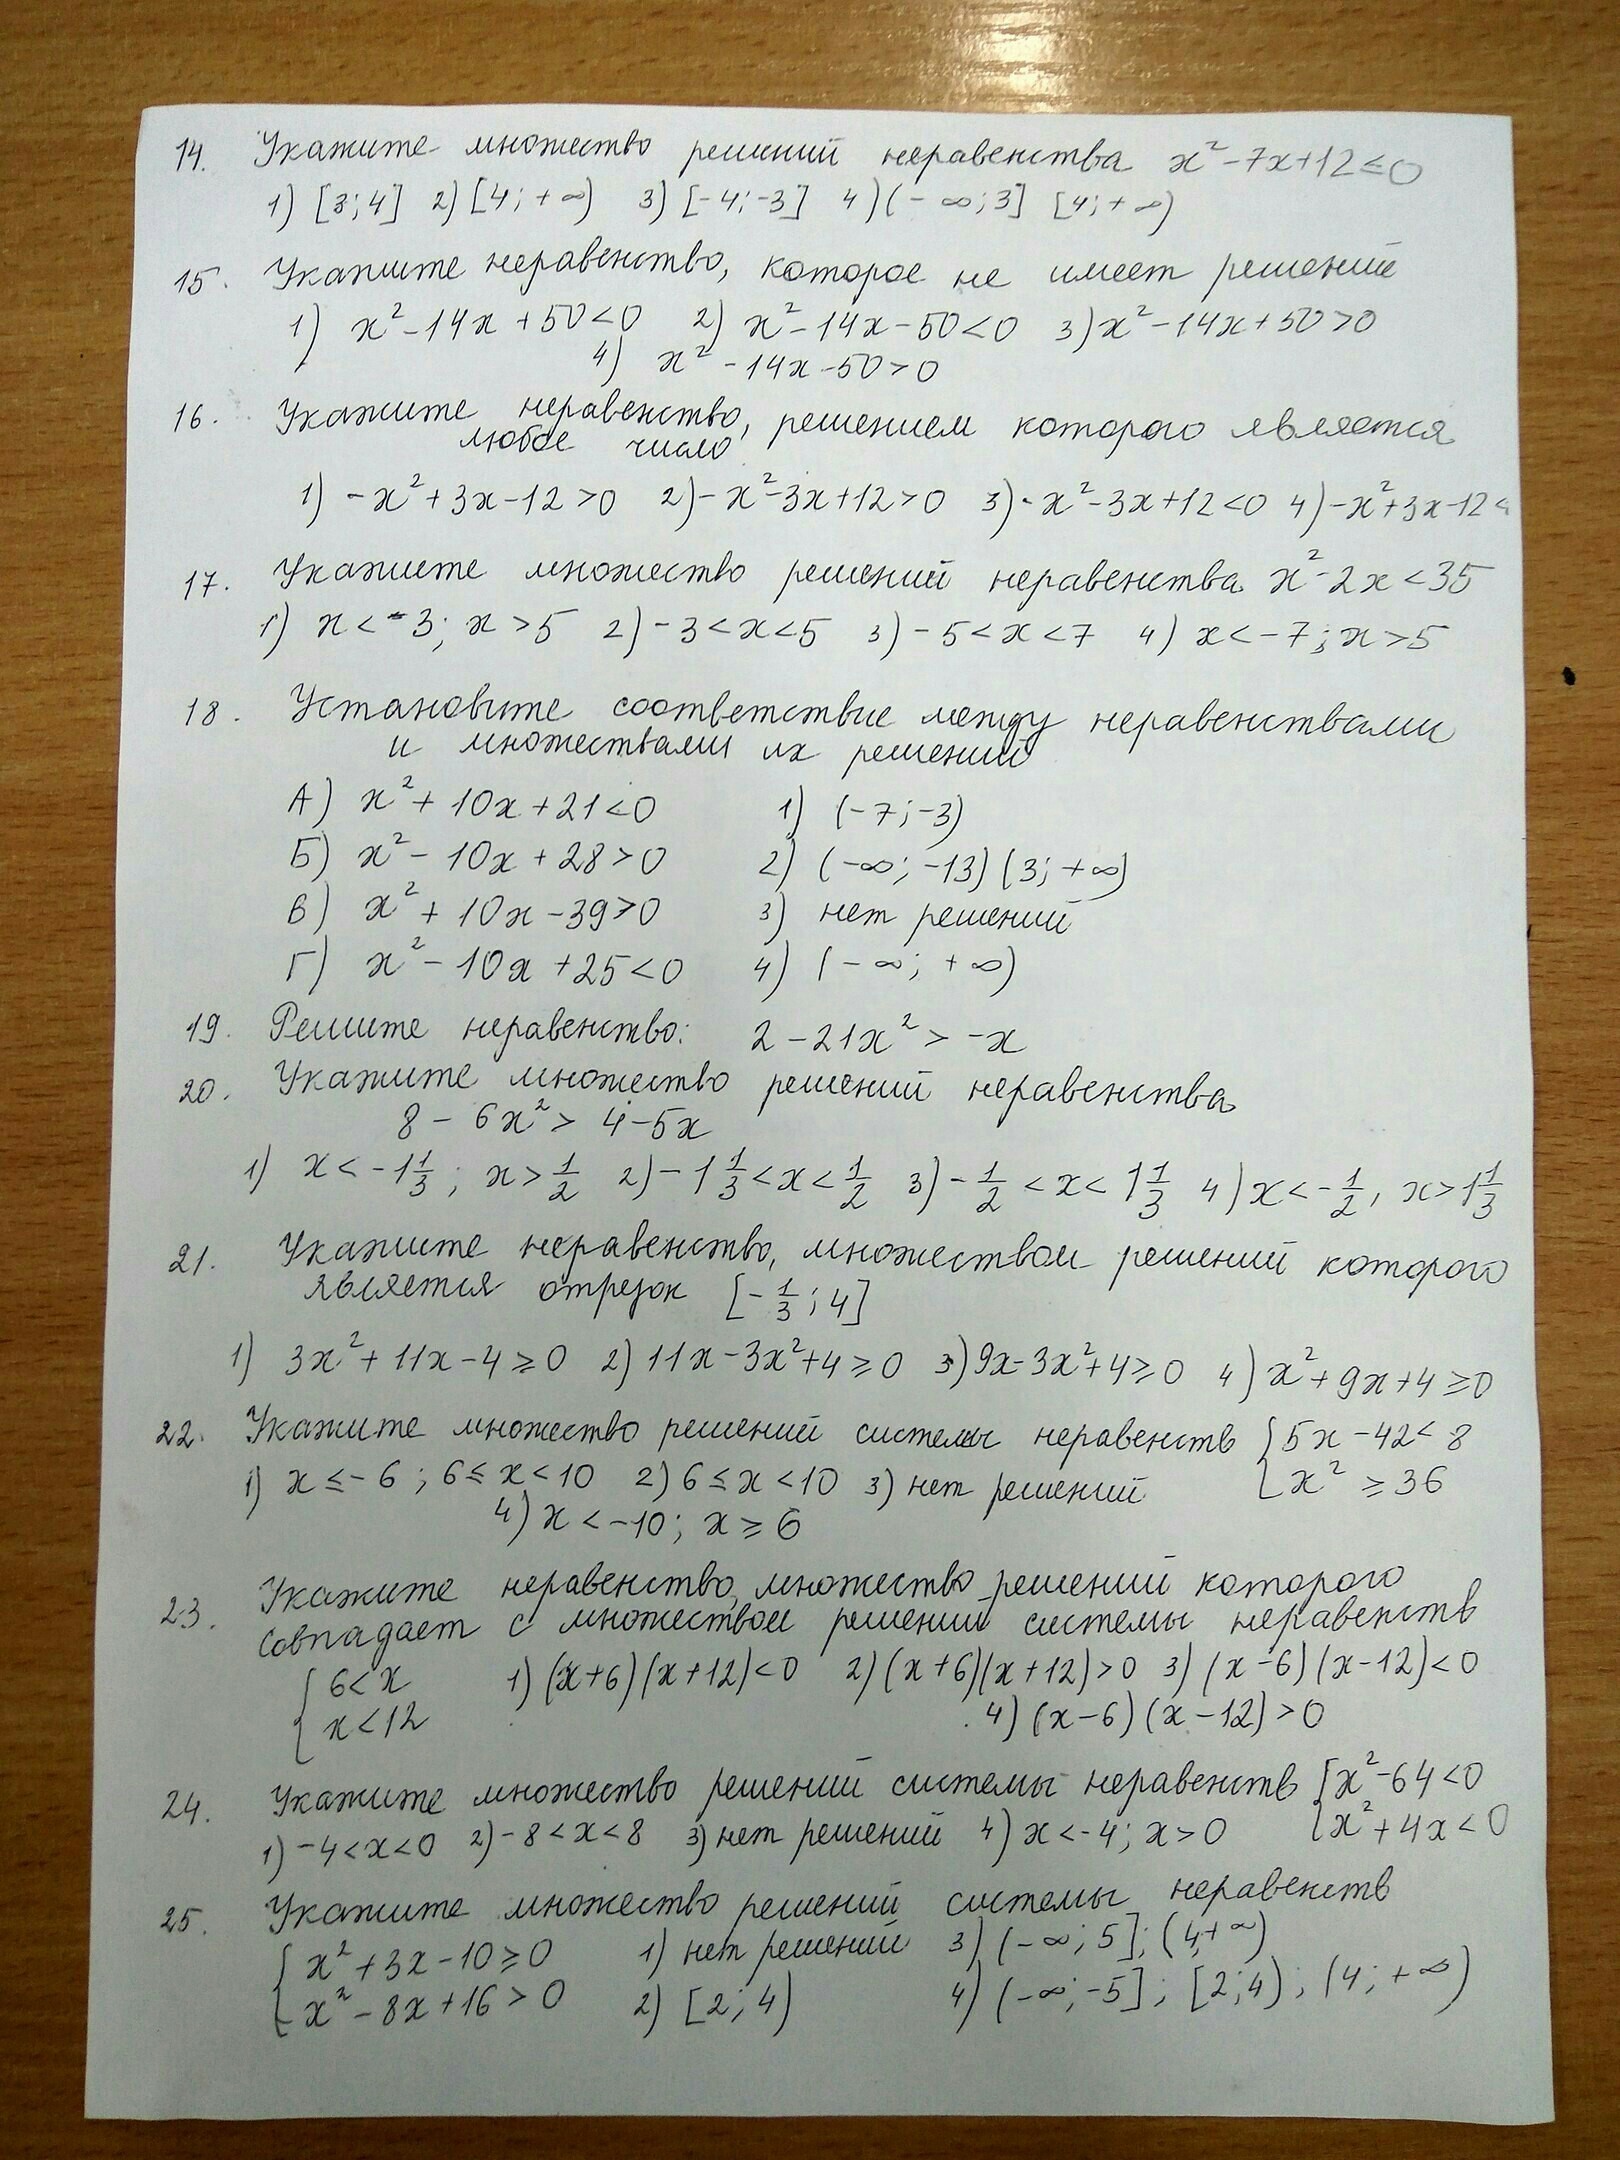 14. Укажите множество решений неравенства x²-7x+12≤0
1) [3;4] 2) [4;+∞) 3) [-4;-3] 4) (-∞;3] [4;+∞)
15. Укажите неравенство, которое не имеет решений
1) x²-14x+50<0 2) x²-14x-50<0 3) x²-14x+50>0
4) x²-14x-50>0
16. Укажите неравенство, решением которого является
любое число
1) -x²+3x-12>0 2) -x²-3x+12>0 3) -x²-3x+12<0 4) -x²+3x-12<
17. Укажите множество решений неравенства x²-2x<35
1) x<-3; x>5 2) -3<x<5 3) -5<x<7 4) x<-7; x>5
18. Установите соответствие между неравенствами
и множествами их решений
А) x²+10x+21<0 1) (-7;-3)
Б) x²-10x+28>0 2) (-∞;-13) (3;+∞)
В) x²+10x-39>0 3) нет решений
Г) x²-10x+25<0 4) (-∞;+∞)
19. Решите неравенство: 2-21x²>-x
20. Укажите множество решений неравенства
8-6x²>4-5x
1) x<-1 1/3; x>1/2 2) -1 1/3<x<1/2 3) -1/2<x<1 1/3 4) x<-1/2, x>1 1/3
21. Укажите неравенство, множеством решений которого
является отрезок [-1/3;4]
1) 3x²+11x-4≥0 2) 11x-3x²+4≥0 3) 9x-3x²+4≥0 4) x²+9x+4≥0
22. Укажите множество решений системы неравенств {5x-42<8
1) x≤-6; 6≤x<10 2) 6≤x<10 3) нет решений {x²≥36
4) x<-10; x≥6
23. Укажите неравенство, множество решений которого
совпадает с множеством решений системы неравенств
{6<x 1) (x+6)(x+12)<0 2) (x+6)(x+12)>0 3) (x-6)(x-12)<0
{x<12 4) (x-6)(x-12)>0
24. Укажите множество решений системы неравенств {x²-64<0
1) -4<x<0 2) -8<x<8 3) нет решений 4) x<-4; x>0 {x²+4x<0
25. Укажите множество решений системы неравенств
{x²+3x-10≥0 1) нет решений 3) (-∞;5]; (4;+∞)
{x²-8x+16>0 2) [2;4) 4) (-∞;-5]; [2;4); (4;+∞)